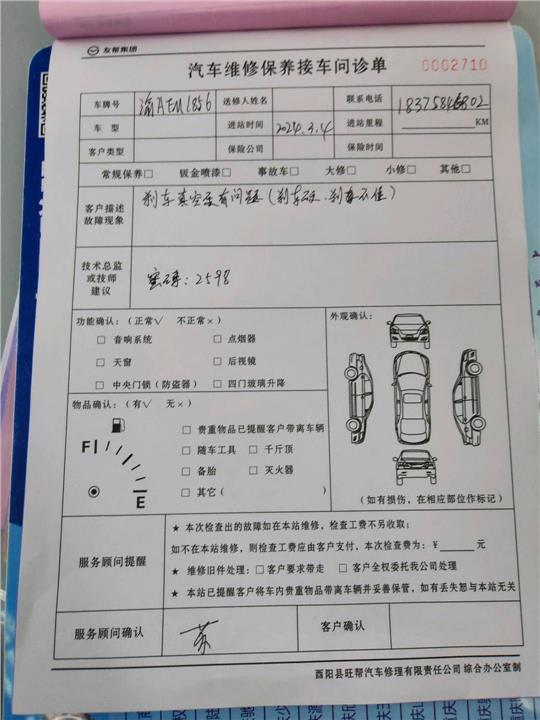 友帮集团
汽车维修保养接车问诊单 0002710
车牌号 渝AFU1856 送修人姓名 联系电话
车 型 进站时间 2024.3.4 进站里程 KM
客户类型 保险公司 保险时间
常规保养□ 钣金喷漆□ 事故车□ 大修□ 小修□ 其他□
客户描述
故障现象
刹车真空泵有问题(刹车硬、刹车不佳)
技术总监
或技师
建议
密码:2598
功能确认:(正常√ 不正常×)
□ 音响系统 □ 点烟器
□ 天窗 □ 后视镜
□ 中央门锁(防盗器) □ 四门玻璃升降
物品确认:(有√ 无×)
□ 贵重物品已提醒客户带离车辆
□ 随车工具 □ 千斤顶
□ 备胎 □ 灭火器
□ 其它( )
F
E
外观确认:
(如有损伤,在相应部位作标记)
服务顾问提醒
★ 本次检查出的故障如在本站维修,检查工费不另收取;
如不在本站维修,则检查工费应由客户支付,本次检查费为:¥______元
★ 维修旧件处理:□ 客户要求带走 □ 客户全权委托我公司处理
★ 本站已提醒客户将车内贵重物品带离车辆并妥善保管,如有丢失恕与本站无关
服务顾问确认 苏 客户确认
酉阳县旺帮汽车修理有限责任公司 综合办公室制